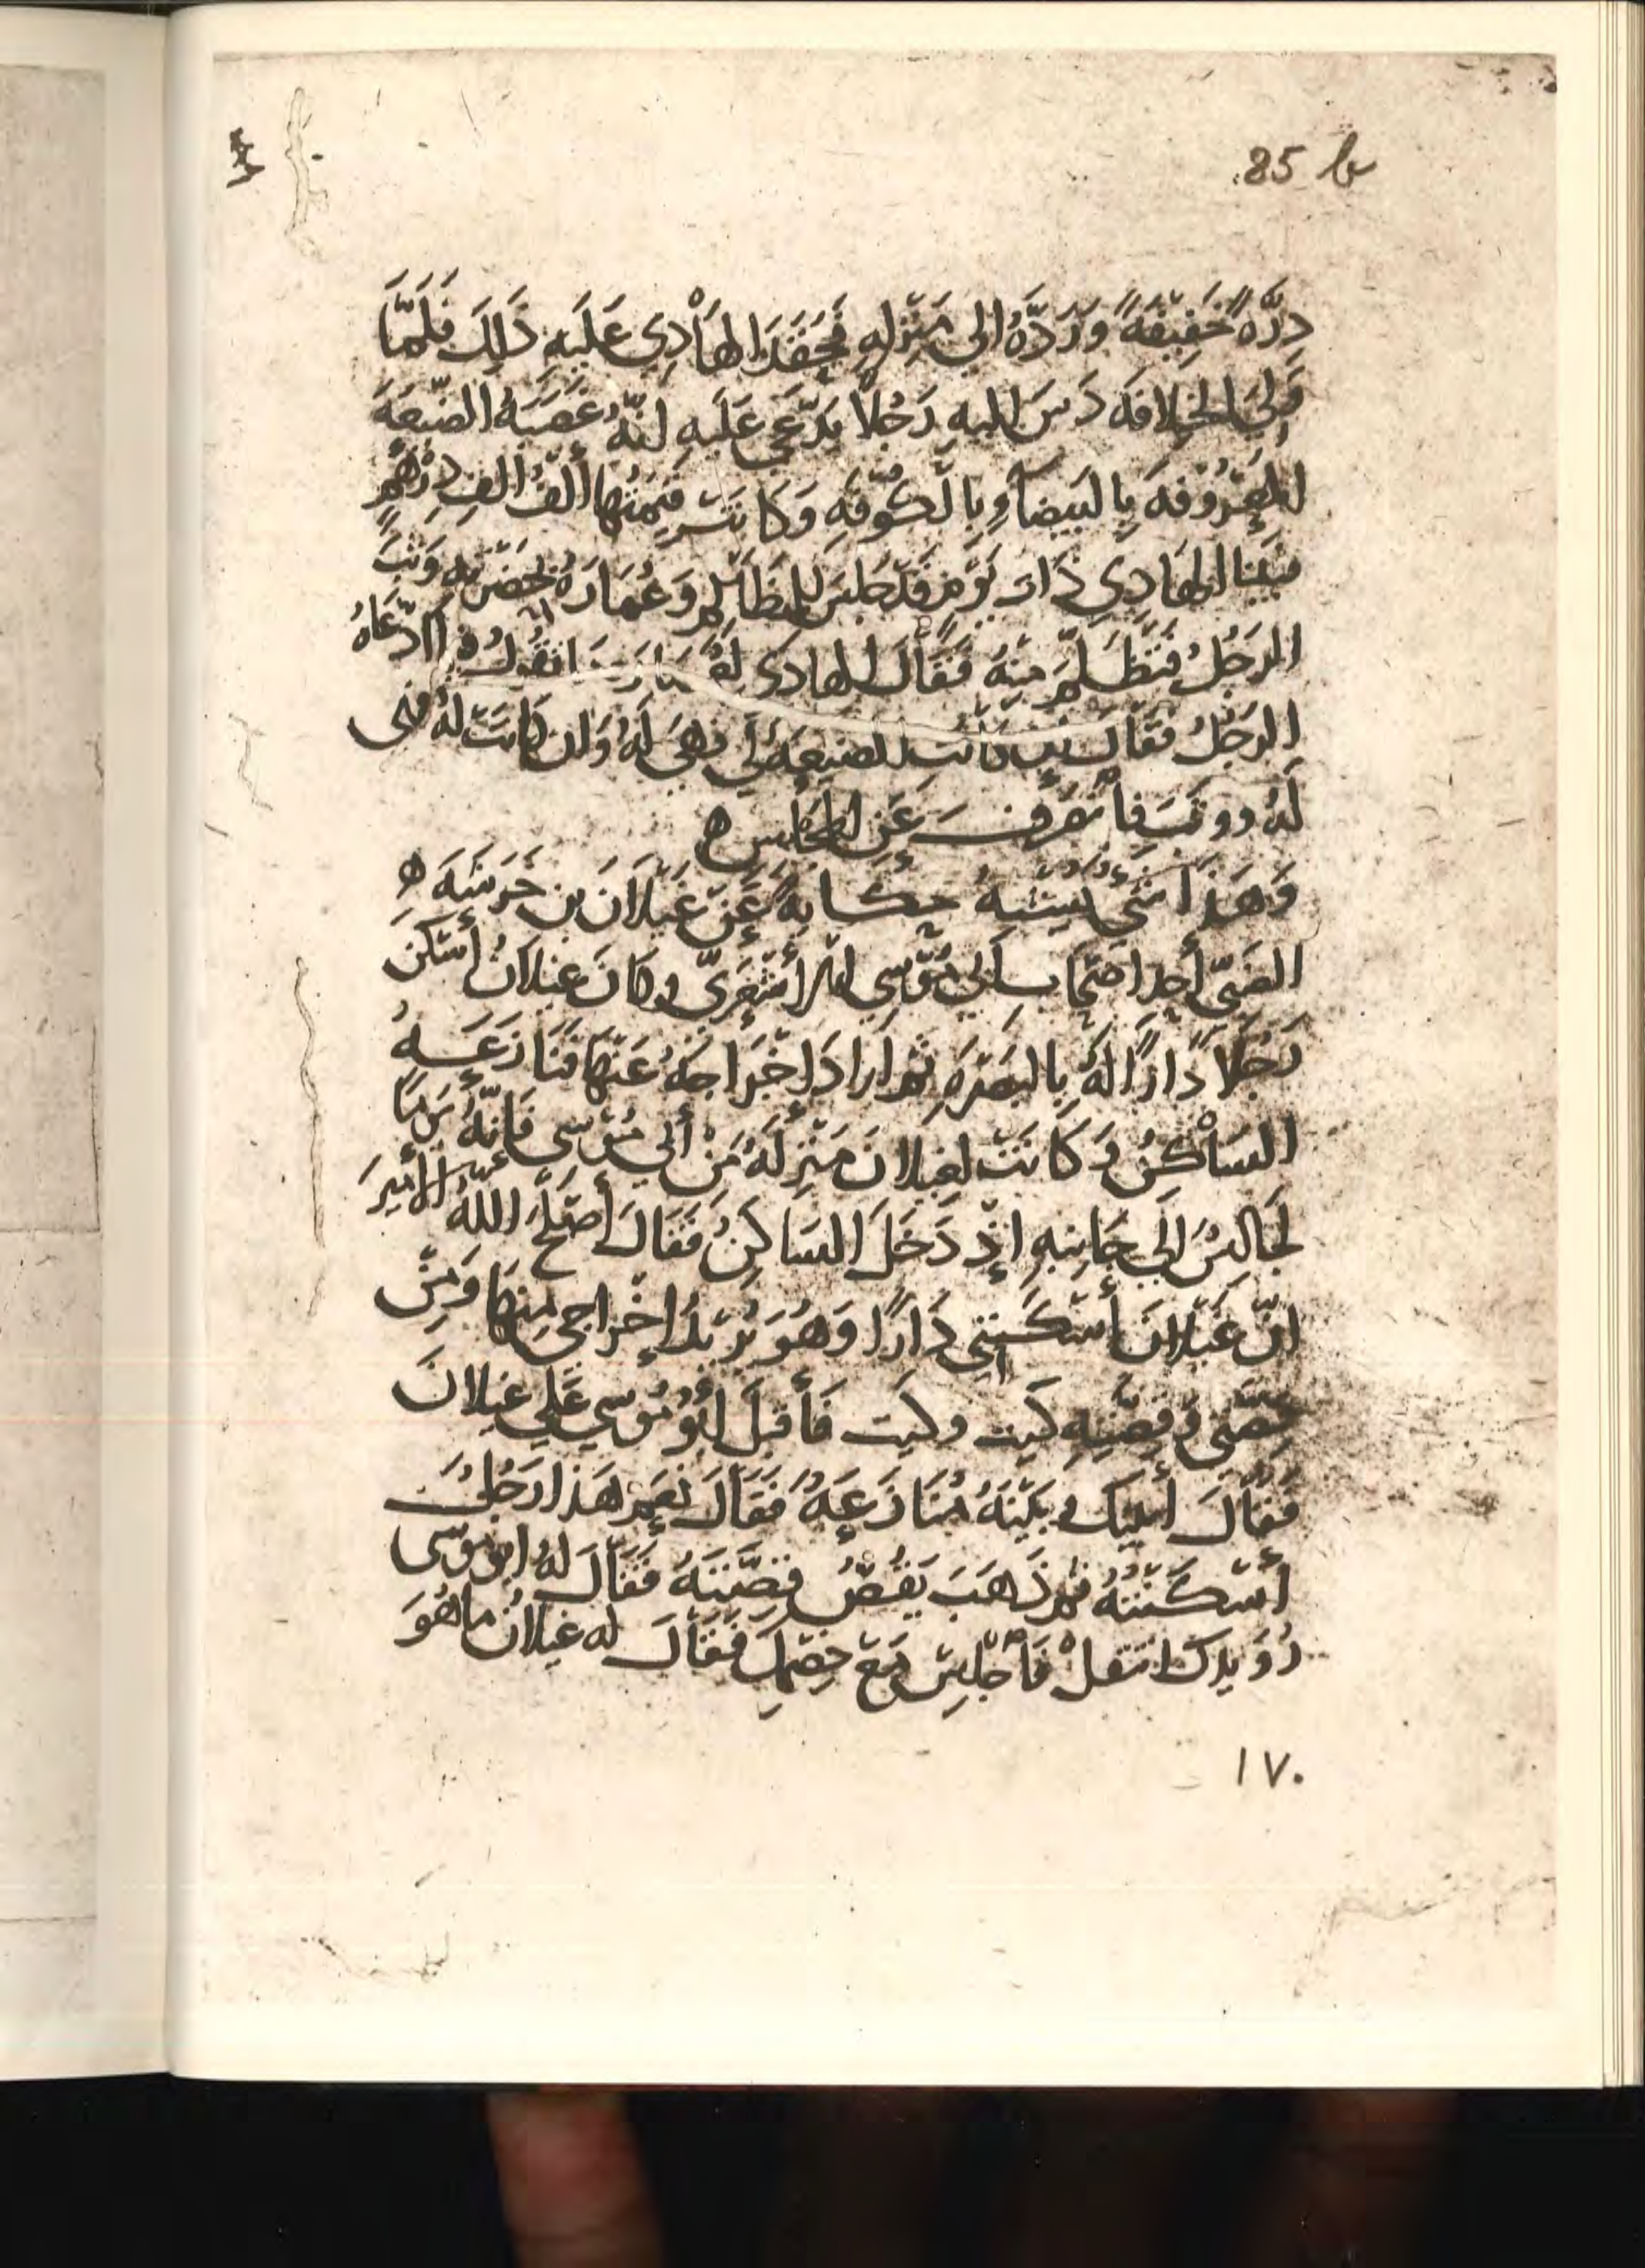 85 b
دِرَّةً خَفِيفَةً وَرَدَّهُ الى مَنْزِلِهِ فَحَقَدَ الهَادِي عَلَيهِ ذَالِكَ فَلَمَّا
وَلِيَ الخِلافَه دَسَّ اليهِ رَجُلاً يَدَّعي عَلَيهِ انَّهُ غَصَبَهُ الضَّيعَهَ
المعْرُوفَهَ بِالبَيضَاءِ بِالكُوفَهِ وَكَانَتْ قيمَتُها أَلْفُ الفِ دِرْهَمٍ
فبَينا الهَادِي ذَاتَ يَوْمٍ قَدْ جَلَسَ لِلمظَالِمِ وَعُمَارَهُ بحَضْرَتِهِ وَثَبَ
الرَجُلُ فتَظَلَّمَ مِنْهُ فَقَالَ الهادِى لعُمَارَهَ مَا تَقُولُ فيما ادّعَاهُ
الرَجُلُ فَقَالَ إن كانَت الضيعَهُ لي فَهيَ لَهُ وَان كَانَت لَهُ فهى
لَهُ ووثَبَ فانْصَرَفَ عَنِ المجْلِسِ ه
وَهَذا شَيْءٌ يُشْبِهُ حِكَايَهً عَنْ غَيْلَانَ بن خَرَشَهَ ه
الضَبّي أحدِ اصْحَابِ أبي مُوْسِي الأشْعَرِيّ وكَانَ غيلانُ أسْكَنَ
رَجُلاً دَارًا لَهُ بِالبَصْرَهِ ثمّ ارَادَ إخْرَاجَهُ عَنْهَا فَنَازَعَهُ
السَاكِنُ وَكَانَتْ لغيلانَ مَنْزِلَهُ مِنْ أبي مُوْسي فَإنَّهُ يَومًا
لجَالِسُ الَى جَانِبِهِ إذْ دَخَلَ السَاكِنُ فَقَالَ أصْلَحَ اللّهُ الأمِيرَ
انّ غَيْلانَ أسْكَنَني دَارًا وَهُوَ يُريْدُ إخْرَاجي مِنهَا وَمِنْ
قِصَّتي وَقِصَّتِهِ كَيت وكَيت فَأقبَلَ أبُو مُوسي عَلي غيلانَ
فَقَالَ أبَينَكَ وبَيْنَهُ مُنَازَعَهٌ فَقَالَ نَعَمْ هَذا رَجُلٌ
أسْكَنْتُهُ ثمّ ذَهَبَ يَقُصُّ قصَّتَهُ فَقَالَ لهُ ابو موسى
رُوَيدَكَ انتقلْ فَاجْلِسْ مَعَ خصْمِكَ فَقَالَ له غيلانُ ما هُوَ
١٧٠